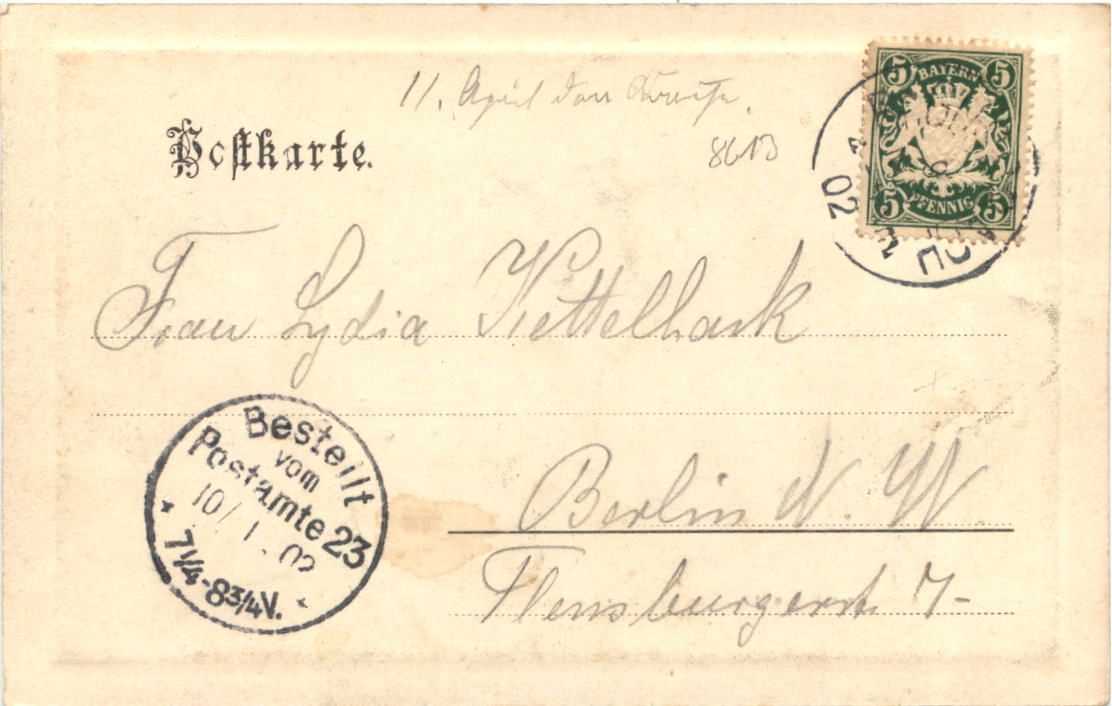 11. April
Postkarte.
8613
5 BAYERN 5
5 PFENNIG 5
02
Frau Lydia Kettelhack
Bestellt
vom
Postamte 23
10/ 1. 02
7 1/4-8 3/4 V.
Berlin N. W.
Flensburgerstr. 7-